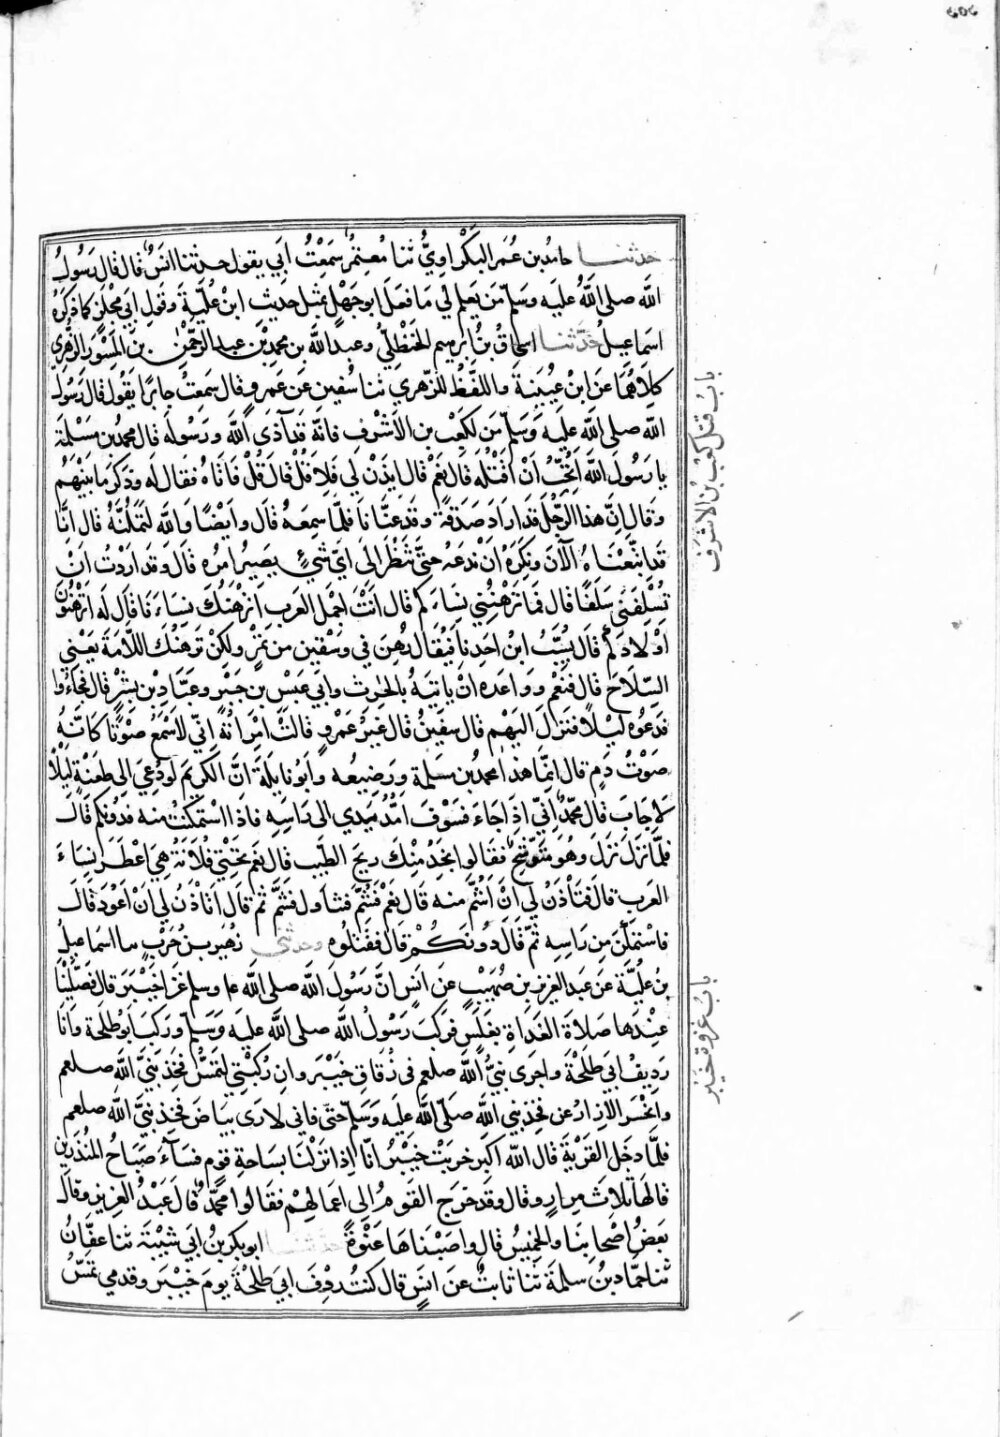 حدثنا حامد بن عُمَر البَكْرَاوِيُّ ثنا مُعتمِرٌ سَمِعْتُ اَبي يقول حدثنا انسٌ قال قال رَسُولُ
الله صلى اللهُ عليه وسلم مَن يَعلم لي مَا فعَلَ ابو جَهْلٍ بمثل حديث ابن عُليّةَ وقولِ ابي مجلزٍ كما ذكرَهُ
اسماعيلُ حَدَّثنا اسحاقُ بنُ ابرهيم الحَنظَلِيُّ وعبدُ الله بن محمد بْن عبد الرحمٰن بن المِسْوَر الزُّهريُّ
كلاهُمَا عَن ابن عُيَينةَ واللفظُ للزهري ثنا سُفين عَن عَمرٍو قال سَمعتُ جابرًا يَقُول قال رَسُولُ
الله صلى الله عليه وَسَلم مَن لِكَعْب بن الأشْرف فانّه قد آذى الله ورَسُولَه قال محمد بن مَسْلمة
يا رَسُولَ الله اَتُحبُّ اَنْ اَقْتُلَه قال نعَمْ قال ايذَنْ لي فَلِاَقُلْ قال قُلْ فَاَتاهُ فقال لَه وذكَرَ مَا بَيْنَهُم
وقال اِنّ هذا الرّجُلَ قد ارَادَ صَدقةً وقد عَنّانا فلمّا سَمِعَهُ قال وايْضًا والله لتَمَلُّنّهُ قال انّا
قد اتّبَعْناهُ الآن ونَكْرَهُ اَنْ ندَعَهُ حتّى ننْظُرَ الى ايّ شَيْءٍ يَصيرُ امرُه قال وقد ارَدْتُ ان
تُسْلِفَني سَلَفًا قال فما ترْهَنُني نِسَاءَكم قال انْتَ اجْمَلُ العَرب اَنرْهَنُكَ نِسَاءَنا قال لَه اتَرْهنُون
اَوْلادَكم قال يُسَبُّ ابنُ احَدِنا فيُقال رُهِنَ في وَسْقين من تمْرٍ ولكنْ نَرهَنُك اللأمة يَعْني
السِّلاحَ قال فنَعَم ووَاعدَه انْ ياتيَهُ بالحٰرث وابي عَبْس بن جَبْرٍ وعَبّاد بْن بِشْرٍ قال فجاءُوا
فدَعَوْه ليْلًا فنَزَلَ اليْهم قال سفينُ قال غيرُ عَمْروٍ قالتْ امرَاَتُهُ انّي لاَسْمَعُ صَوْتًا كانّهُ
صَوْتُ دَمٍ قال اِنّما هذا محمد بن مَسلمة ورَضِيعُه وابُو نايلَة انَّ الكَريمَ لو دُعيَ الى طَعنةٍ ليْلًا
لاجابَ قال محمّدٌ اِنّي اِذا جاءَ فسَوْفَ امُدُّ يَدي الى رَاسِهِ فاذا استَمكنْتُ منه فدُونكم قال
فلمّا نزَلَ نزَلَ وهُو مُتَوَشّحٌ فقالوا نَجِدُ مِنْك ريحَ الطّيب قال نعَم تحْتي فُلانةُ هيَ اعْطَرُ نِسَاءِ
العَرب قال فتَاْذَنُ لي انْ اَشُمَّ منه قال نعَمْ فشُمَّ فتناول فشَمَّ ثم قال اتاْذَنُ لي انْ اعُودَ قال
فاستَمكَنَ مِن رَاسِهِ ثمّ قال دُونَكُمْ قال فقَتلُوه وحدثني زهَيرُ بنُ حَرْبٍ سا اسماعيلُ
بنُ عُليّة عَن عَبد العَزيز بن صُهَيْب عَن انَسٍ انَّ رَسُولَ الله صلى الله عليه وسلم غَزَا خَيْبَرَ قال فصَلّيْنا
عِنْدَها صَلاةَ الغَداةِ بغَلَسٍ فرَكبَ رَسُولُ الله صلى الله عليه وَسَلم ورَكبَ ابُو طَلْحةَ وانا
رَدِيفُ ابي طَلْحَةَ واجرَى نبيُّ الله صلعم في زُقاق خَيْبَر وان رُكبَتي لتمَسُّ فخِذَ نبيّ الله صلعم
وانحَسَرَ الازارُ عن فخِذ نبيّ الله صَلّى الله عليه وَسَلم حتى فاني لاَرَى بيَاضَ فخِذ نبيّ الله صلعم
فلمّا دخَل القَرْيَةَ قال الله اكبر خرِبَتْ خَيْبَرُ انّا اِذا نزَلْنا بسَاحةِ قومٍ فسَاءَ صَبَاحُ المُنْذَرين
قالهَا ثلاثَ مِرارٍ وقال وقد خرَج القَومُ اِلى اعمالِهم فقالوا محمّدٌ قال عَبدُ العَزيز وقال
بعَضُ اصحابنا والخميسُ قال واصَبْناهَا عَنْوَةً حَدّثنا ابو بكر بنُ ابي شَيْبَة ثنا عفّانُ
ثنا حمّاد بنُ سلمة ثنا ثابتٌ عَن انَسٍ قال كنتُ رِدْفَ ابي طَلْحةَ يومَ خَيْبَر وقدمي تمَسُّ
بابُ قتل كعب بن الاشرف
بابُ غزوة خيبر